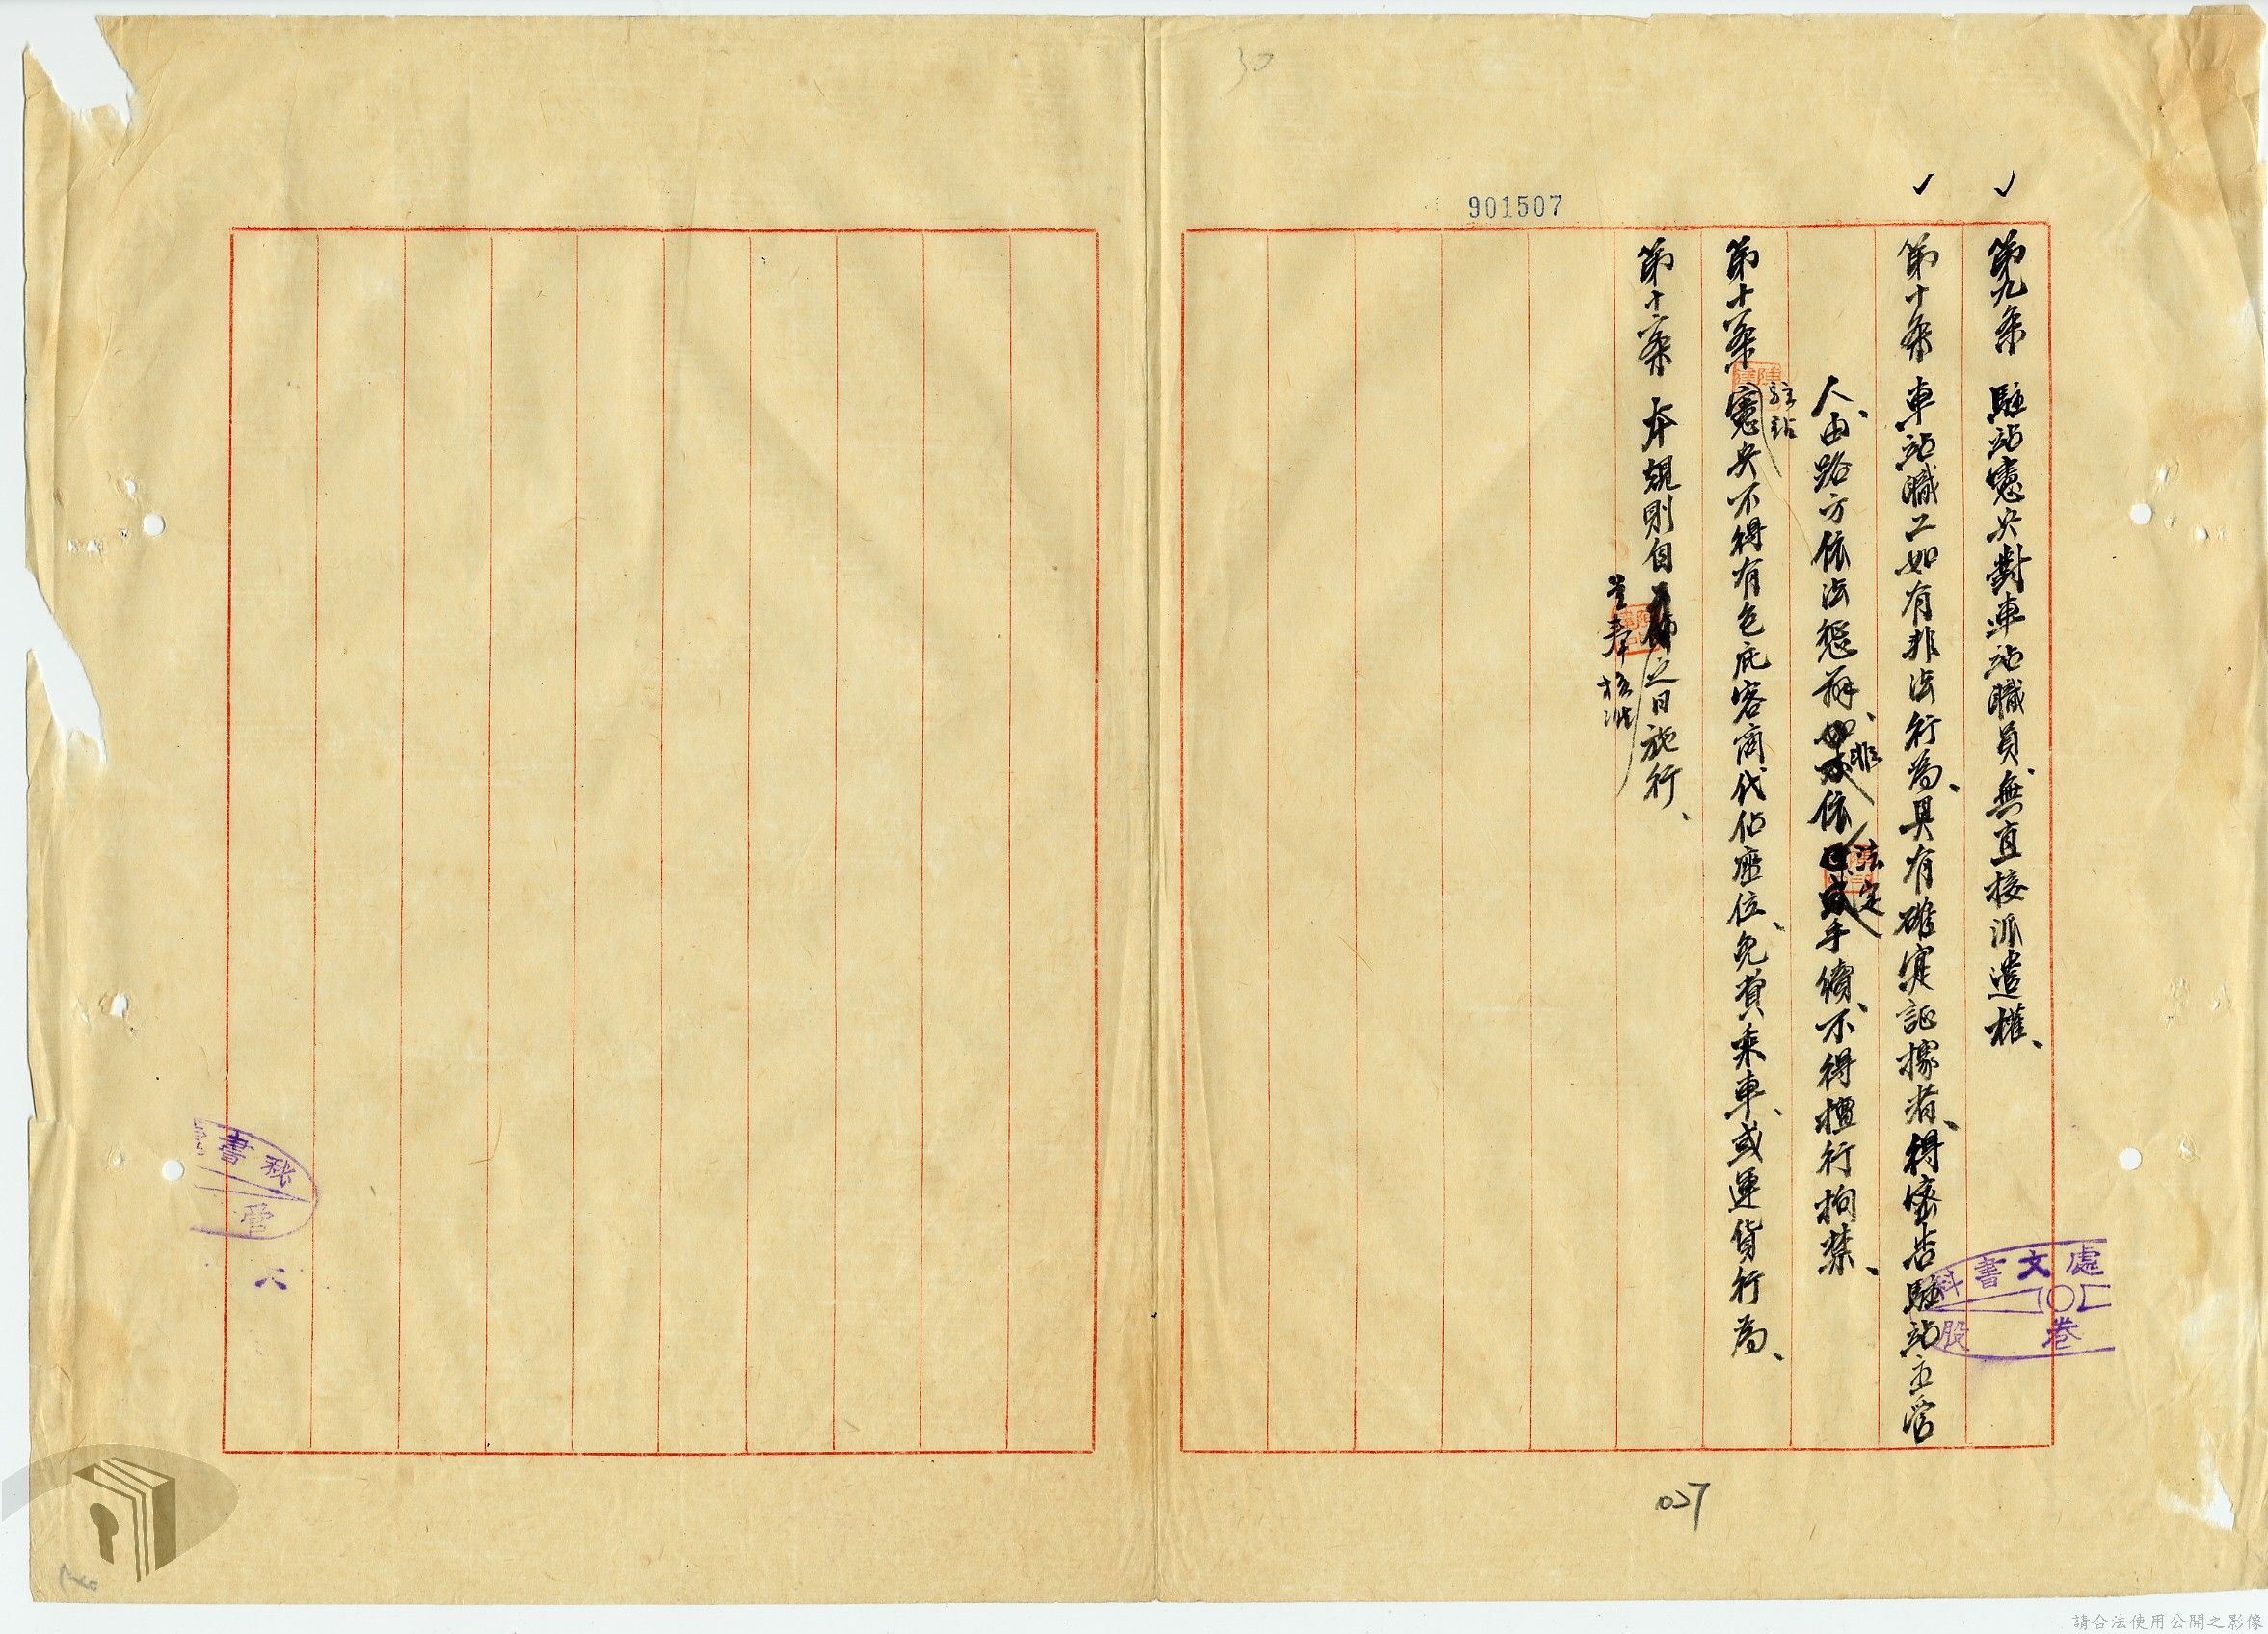 30
901507
第九条 駐站憲兵對車站職員、無直接派遣權、
第十条 車站職工如有非法行為、具有確寔証據者、得密告駐站主管
人、由路方依法懲辦、非依法定手續、不得擅行拘禁、
第十一条 駐站憲兵不得有包庇客商代佔座位、免費乘車、或運貨行為、
第十二条 本規則自呈奉核准之日施行、
027
處文書科
卷股
秘書
管
請合法使用公開之影像